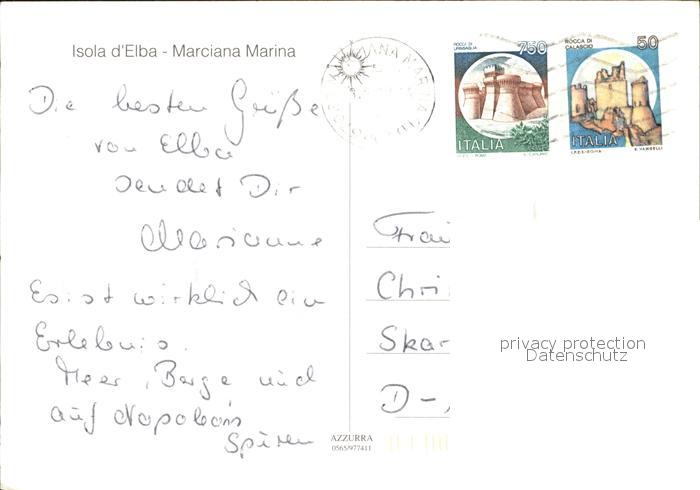 Isola d'Elba - Marciana Marina
MARCIANA MARINA
ROCCA DI
URBISAGLIA
750
ITALIA
ROCCA DI
CALASCIO
50
ITALIA
I.P.Z.S.-ROMA E. VANGELLI
Die besten Grüße
von Elba
sendet Dir
Marianne
Es ist wirklich ein
Erlebnis.
Meer, Berge und
auf Napoleons
Spuren
Frau
Chri
Skar
D-
privacy protection
Datenschutz
AZZURRA
0565/977411